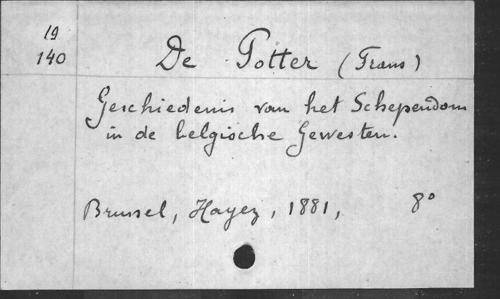 19
140
De Potter (Frans)
Geschiedenis van het Schependom
in de belgische Gewesten.
Brussel, Hayez, 1881, 8°